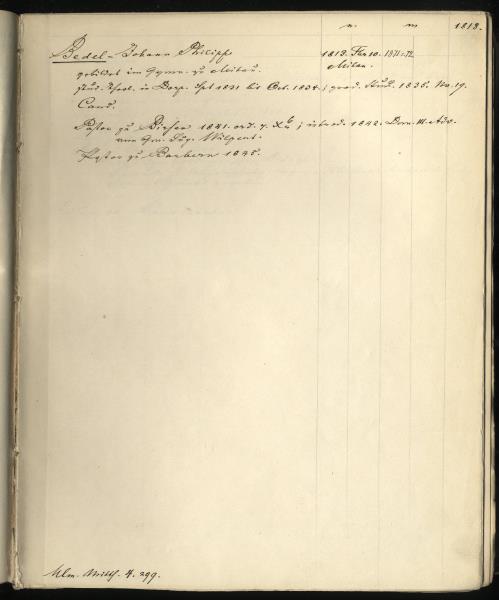 n. m 1813.
Bedel - Johann Philipp 1813. Febr 10. 1871 : 72
gebildet im Gymn. zu Mitau. Mitau.
stud. theol. in Dorp. Spt 1831 bis Oct. 1834; grad. Stud. 1835. No. 19.
Cand.
Pastor zu 1841. ord. 1842. Dom. III. Adv.
von Gen. Sup.
Pastor zu Barbern 1845.
Ulm. Mitth. 4. 299.